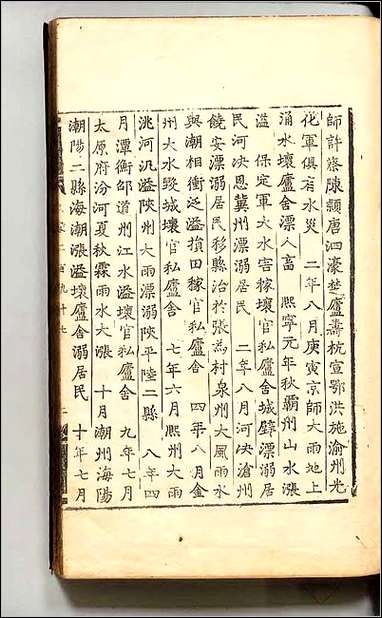 師許蔡陳潁唐泗濠楚廬壽杭宣鄂洪施渝州光
化軍俱有水災　二年八月庚寅京師大雨地上
涌水壞廬舍漂人畜　熙寧元年秋霸州山水漲
溢　保定軍大水害稼壞官私廬舍城壁漂溺居
民河決恩冀州漂溺居民　二年八月河決滄州
饒安漂溺居民移縣治於張爲村泉州大風雨水
與潮相衝泛溢損田稼官私廬舍　四年八月金
州大水毀城壞官私廬舍　七年六月熙州大雨
洮河汎溢陝州大雨漂溺陝平陸二縣　八年四
月潭衡邵道州江水溢壞官私廬舍　九年七月
太原府汾河夏秋霖雨水大漲　十月潮州海陽
潮陽二縣海潮漲溢壞廬舍溺居民　十年七月